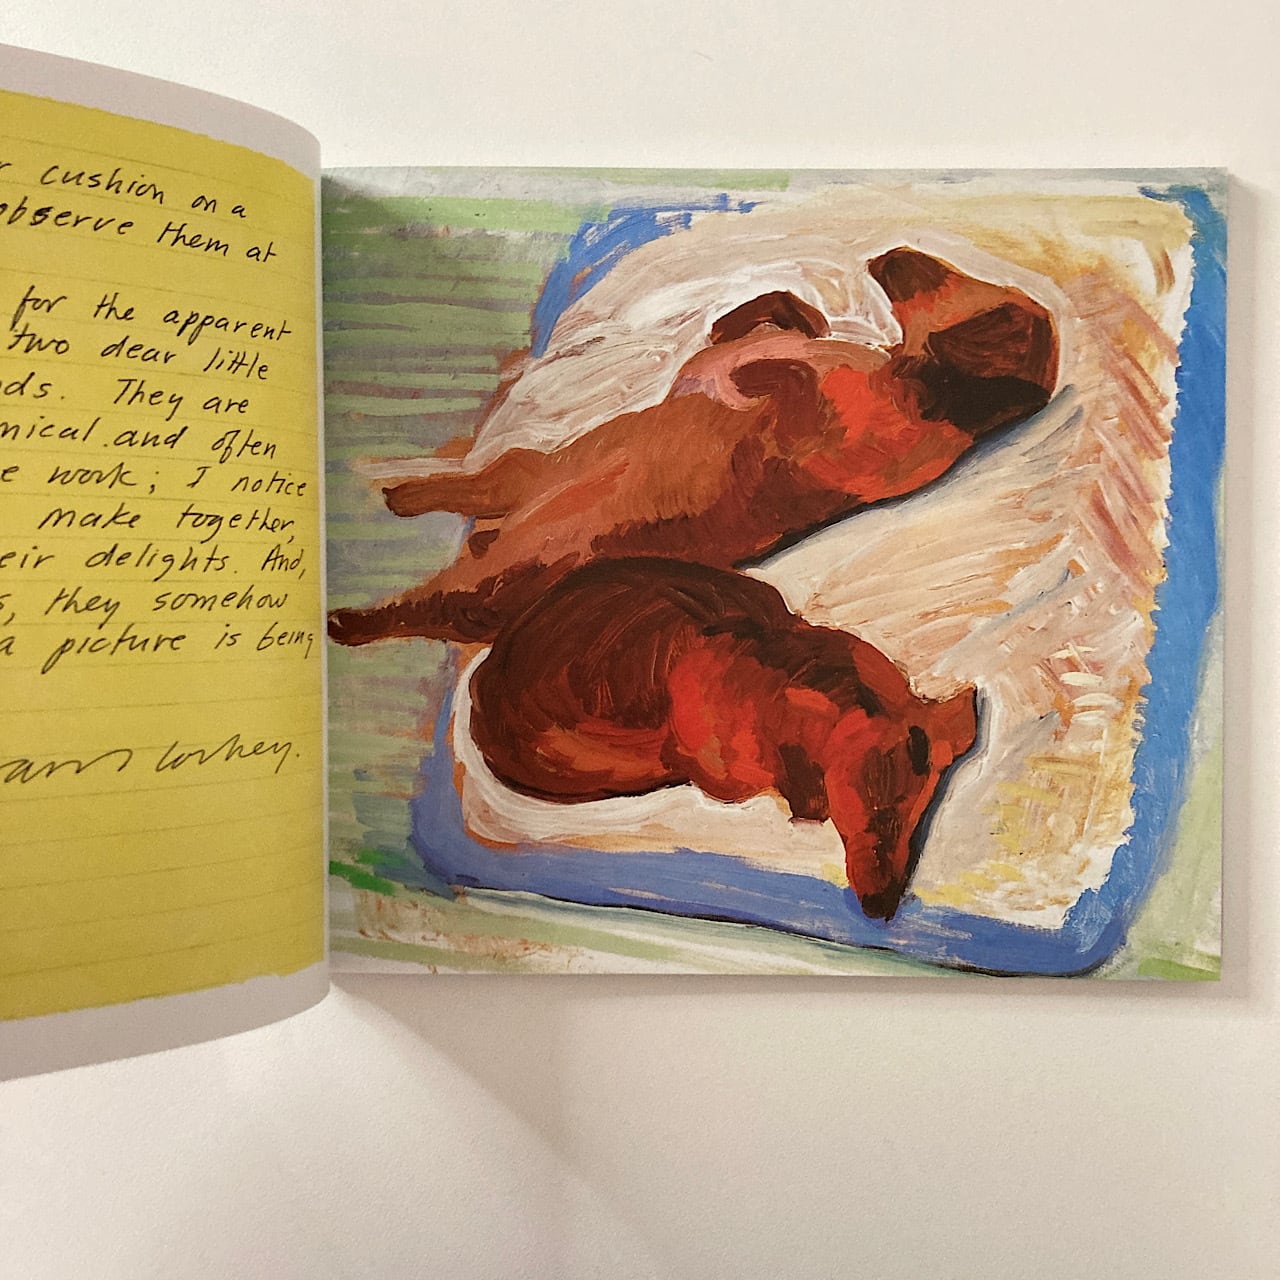 cushion on a
observe them at
for the apparent
two dear little
ds. They are
nical and often
e work; I notice
make together,
eir delights. And,
s, they somehow
a picture is being